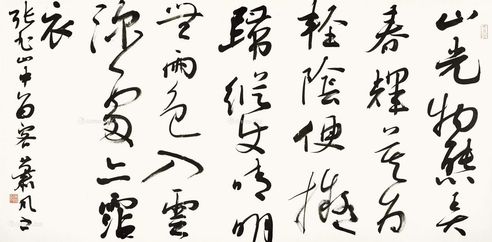 山光物態弄
春輝莫為
輕陰便擬
歸縱使晴明
無雨色入雲
深處亦霑
衣
張旭山中留客 蕭風書